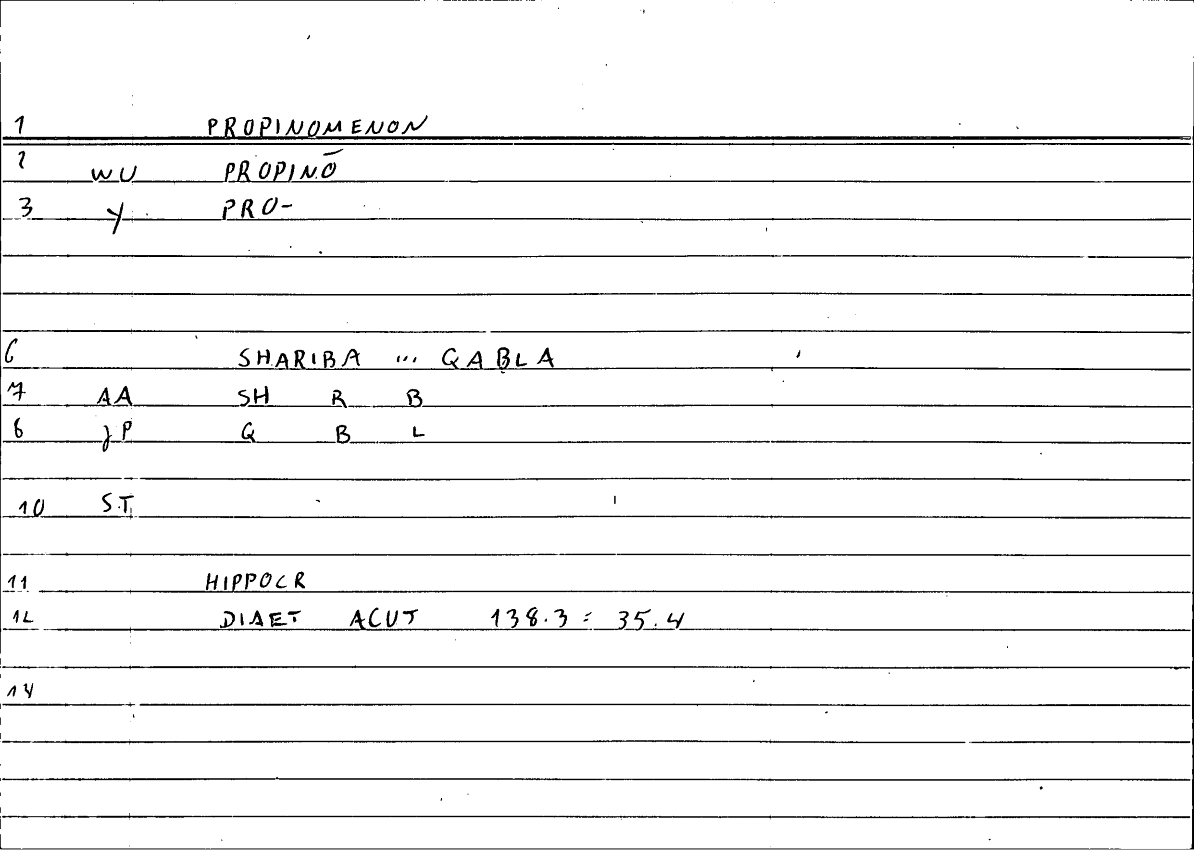 1 PROPINOMENON
2 WU PROPINŌ
3 Y PRO-
6 SHARIBA ... QABLA
7 AA SH R B
8 JP Q B L
10 S.T.
11 HIPPOCR
12 DIAET ACUT 138.3 = 35.4
14